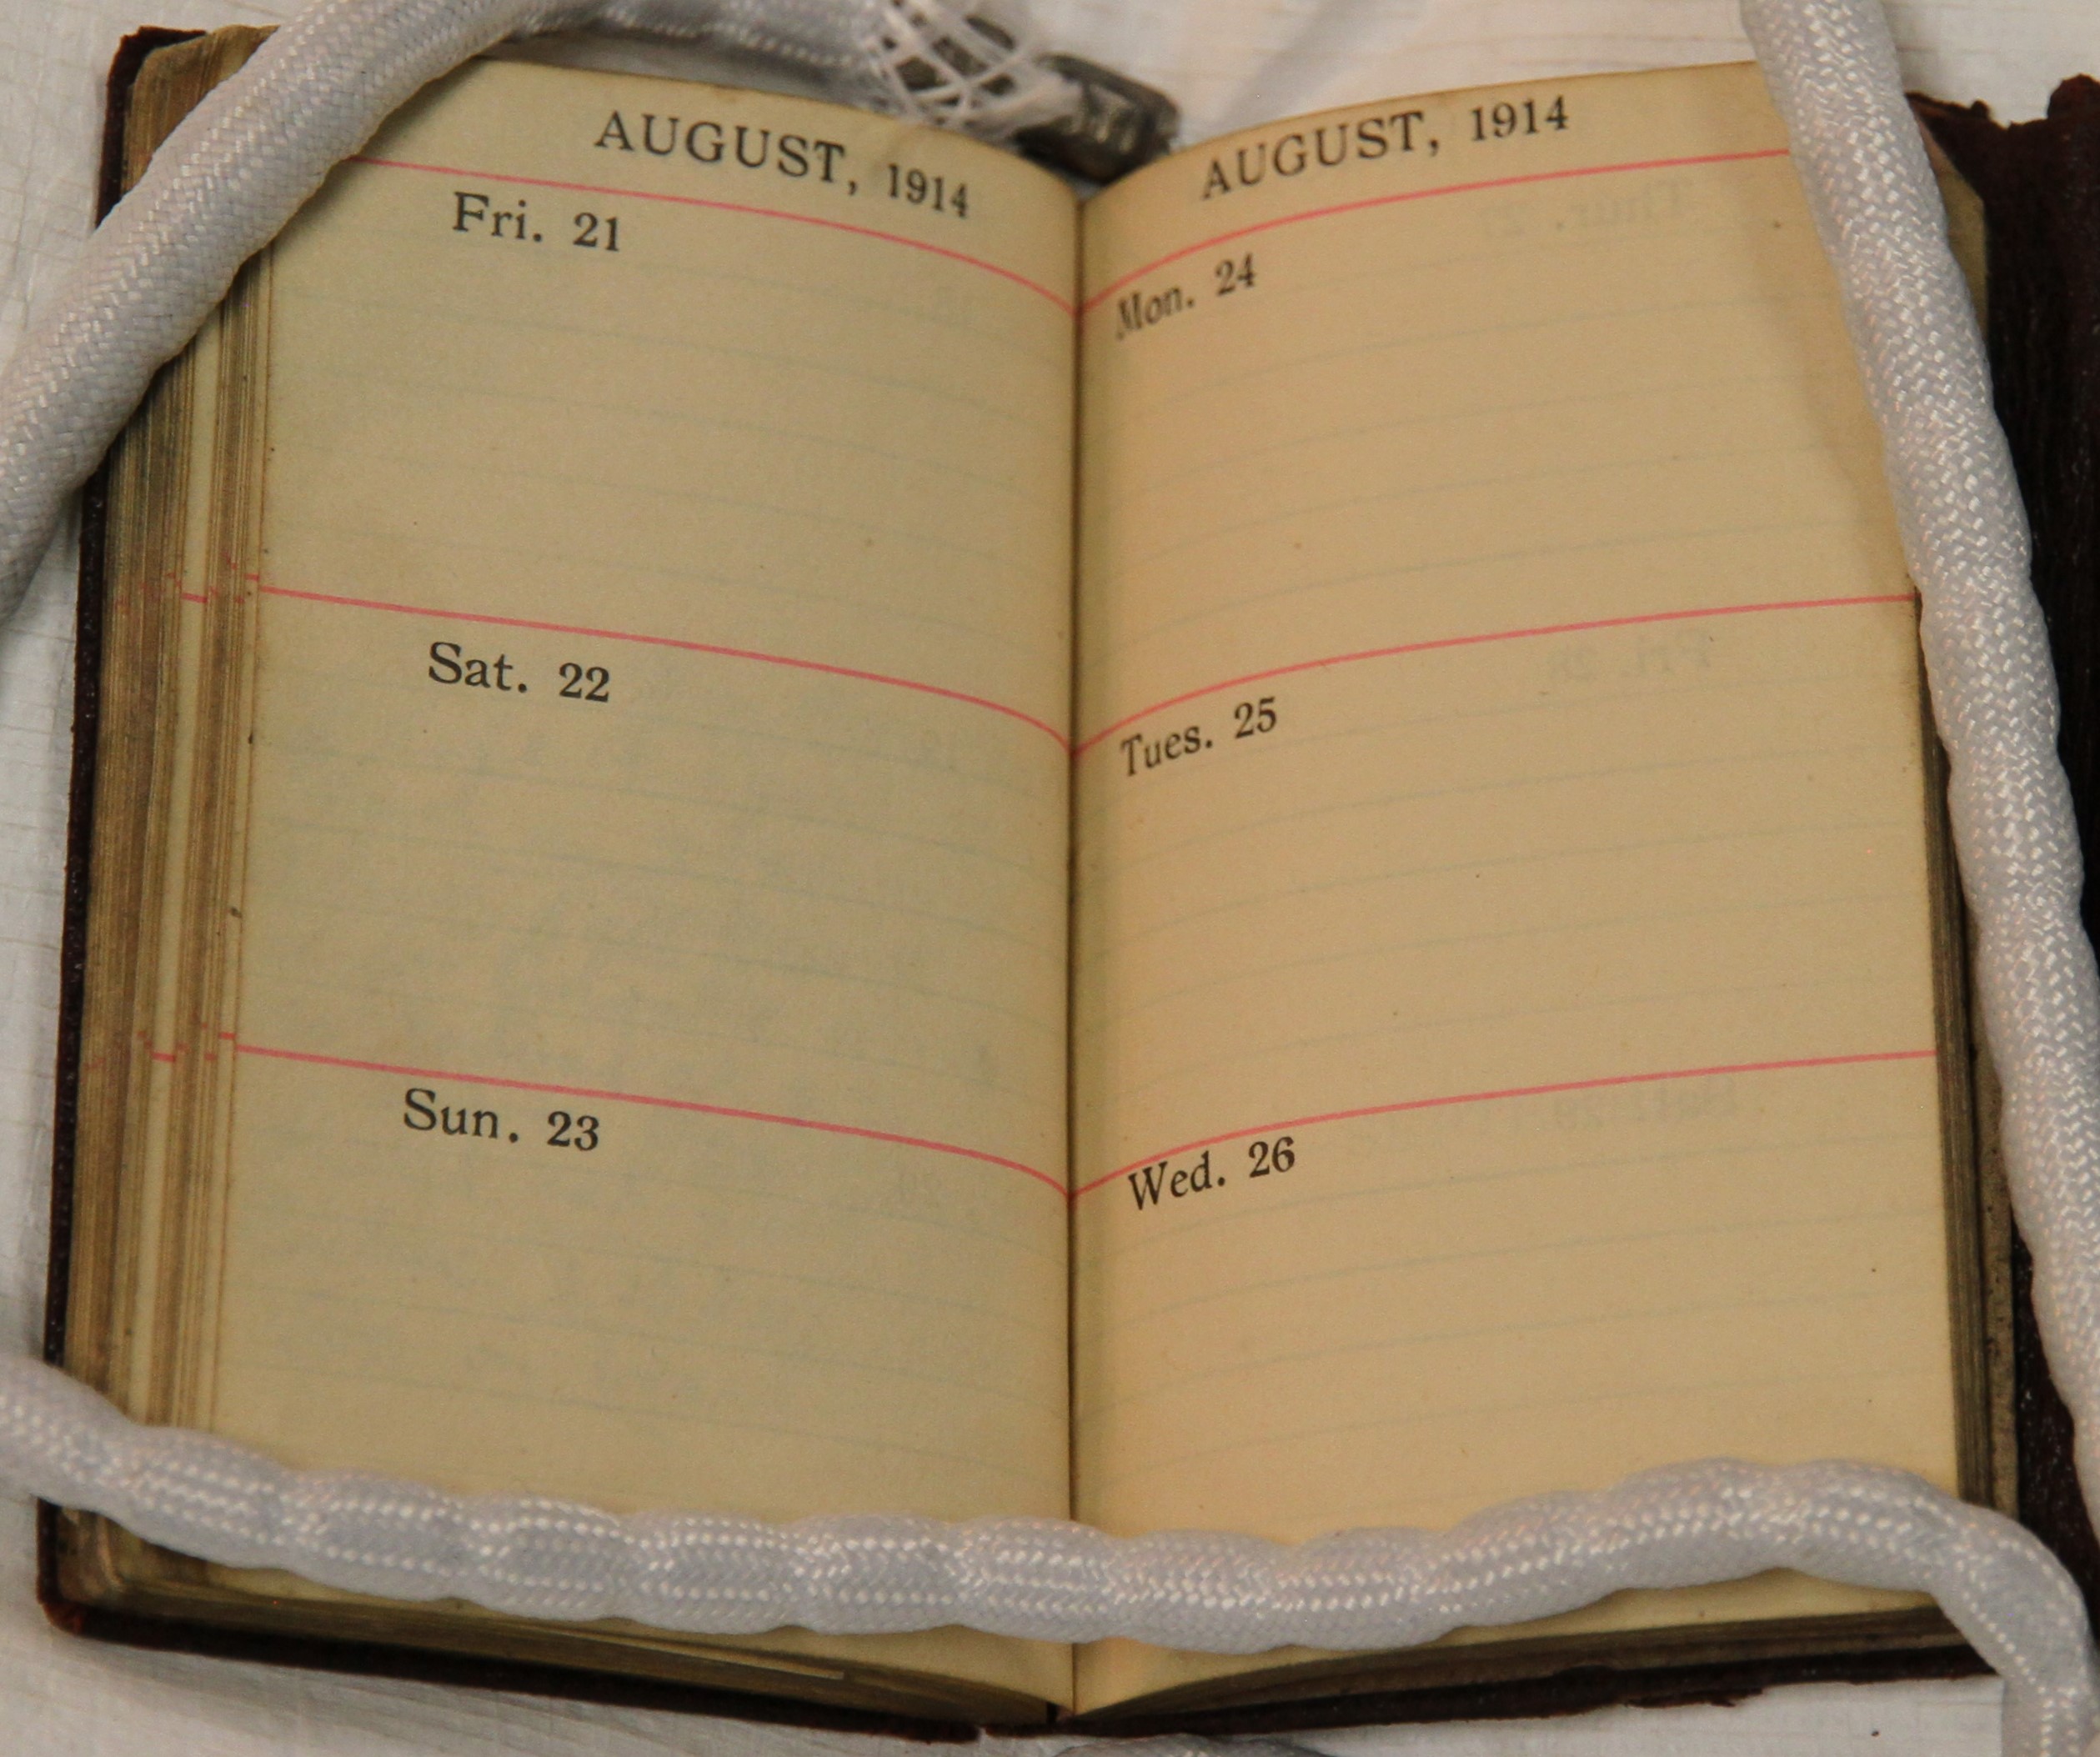 AUGUST, 1914
Fri. 21
Sat. 22
Sun. 23
AUGUST, 1914
Mon. 24
Tues. 25
Wed. 26